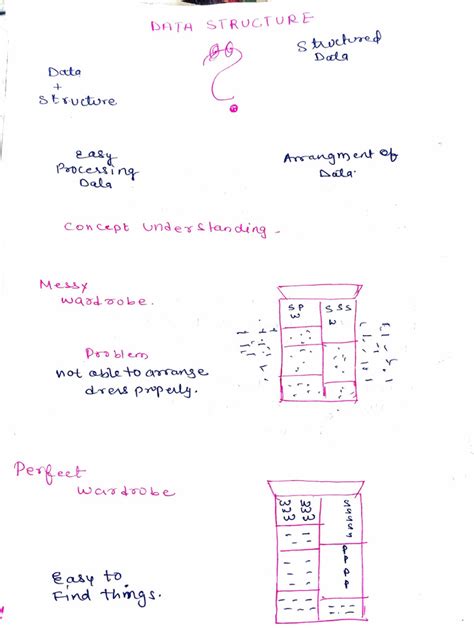 DATA STRUCTURE
Data
+
Structure
?
Structured
Data
Easy
Processing
Data
Arrangment of
Data.
Concept understanding -
Messy
wardrobe.
S P
W
S S S
W
Problem
not able to arrange
dress properly.
Perfect
wardrobe
W W
W W
W W
S
S
S
S
S
P
P
P
P
Easy to
Find things.